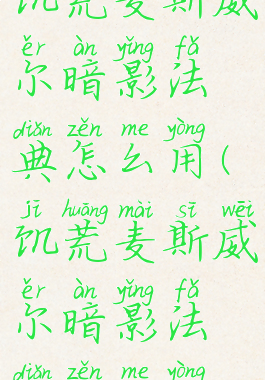 饥荒麦斯威
ěr àn yǐng fǎ
尔暗影法
diǎn zěn me yòng
典怎么用(
jī huāng mài sī wēi
饥荒麦斯威
ěr àn yǐng fǎ
尔暗影法
diǎn zěn me yòng